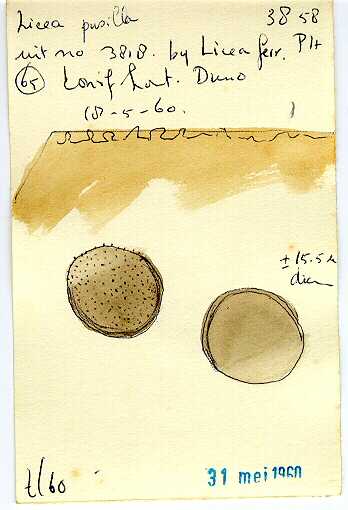 Licea pusilla 3858
uit no 3818. by Licea ferr. Plt
65 Conif hout. Duno
18-5-60.
± 15.5 µ
diam
t/60
31 mei 1960